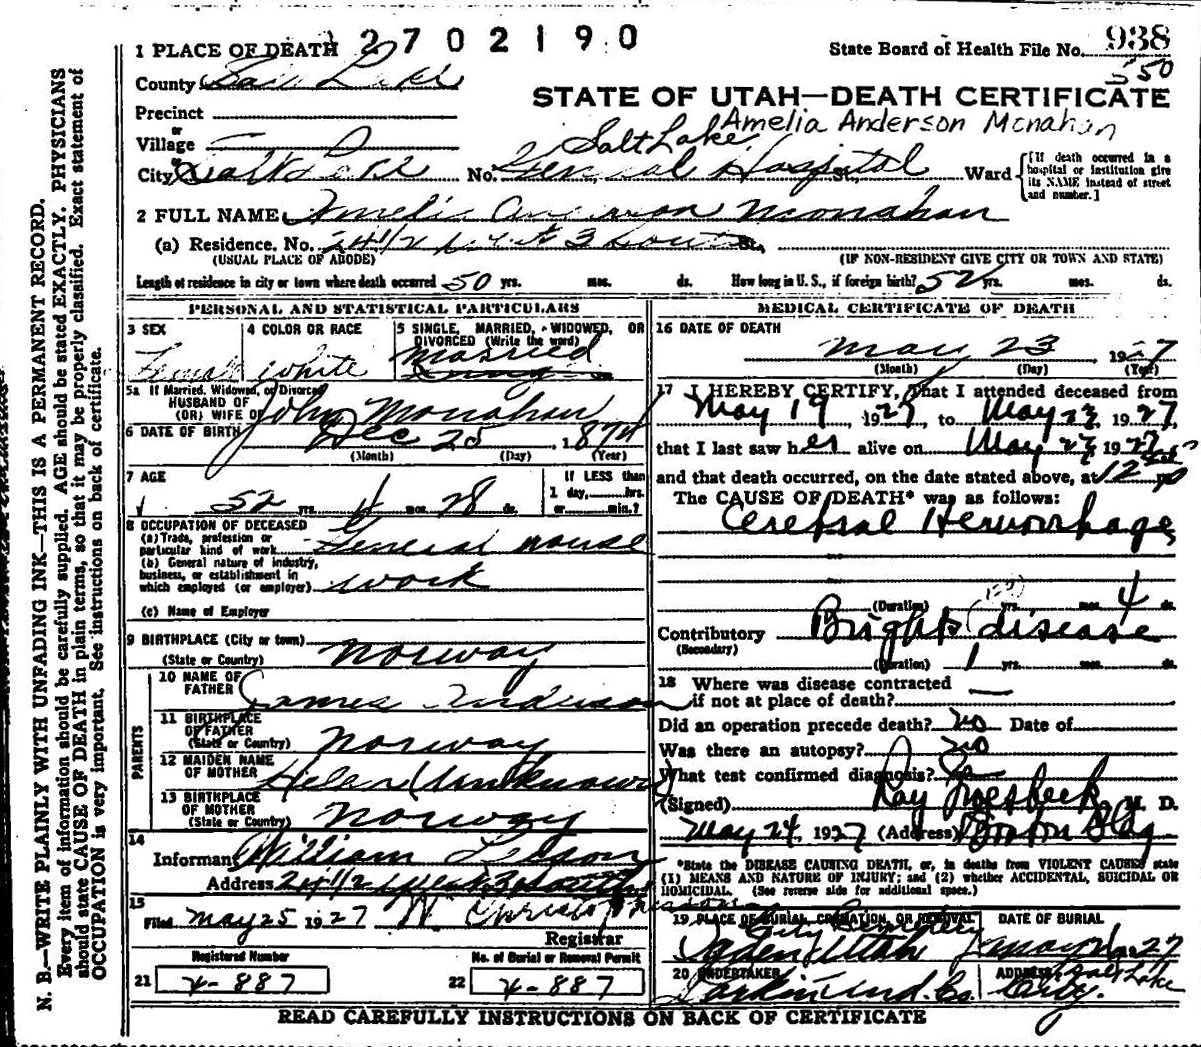 2702190
1 PLACE OF DEATH
State Board of Health File No. 938
550
County Salt Lake
STATE OF UTAH—DEATH CERTIFICATE
Precinct
Amelia Anderson Monahan
or
Village
Salt Lake
City Salt Lake No. General Hospital St., Ward
[If death occurred in a hospital or institution give its NAME instead of street and number.]
2 FULL NAME Amelia Anderson Monahan
(a) Residence. No. 241/2 West 3 South St.,
(USUAL PLACE OF ABODE) (IF NON-RESIDENT GIVE CITY OR TOWN AND STATE)
Length of residence in city or town where death occurred 50 yrs. mos. ds. How long in U. S., if foreign birth? 52 yrs. mos. ds.
PERSONAL AND STATISTICAL PARTICULARS
3 SEX
Female
4 COLOR OR RACE
White
5 SINGLE, MARRIED, WIDOWED, OR DIVORCED (Write the word)
Married
5a If Married, Widowed, or Divorced
HUSBAND OF
(OR) WIFE OF John Monahan
6 DATE OF BIRTH Dec 25 1874
(Month) (Day) (Year)
7 AGE
52 yrs. 4 mos. 28 ds.
If LESS than
1 day, hrs.
or min.?
8 OCCUPATION OF DECEASED
(a) Trade, profession or
particular kind of work General House
(b) General nature of industry,
business, or establishment in
which employed (or employer) work
(c) Name of Employer
9 BIRTHPLACE (City or town)
(State or Country) Norway
PARENTS
10 NAME OF
FATHER James Anderson
11 BIRTHPLACE
OF FATHER
(State or Country) Norway
12 MAIDEN NAME
OF MOTHER Helen (Unknown)
13 BIRTHPLACE
OF MOTHER
(State or Country) Norway
14
Informant William
Address 241/2 West 3 South
15
Filed May 25 1927
Registrar
Registered Number
21 4-887
No. of Burial or Removal Permit
22 4-887
MEDICAL CERTIFICATE OF DEATH
16 DATE OF DEATH
May 23 1927
(Month) (Day) (Year)
17 I HEREBY CERTIFY, that I attended deceased from
May 19, 1927, to May 23, 1927,
that I last saw her alive on May 23 1927
and that death occurred, on the date stated above, at
The CAUSE OF DEATH* was as follows:
Cerebral Hemorrhage
(Duration) yrs. mos. 4 ds.
Contributory Brights disease
(Secondary)
(Duration) 1 yrs. mos. ds.
18 Where was disease contracted
if not at place of death?
Did an operation precede death? no Date of
Was there an autopsy? no
What test confirmed diagnosis?
(Signed) Ray Groesbeck M. D.
May 24, 1927 (Address) Boston Bldg
*State the DISEASE CAUSING DEATH, or, in deaths from VIOLENT CAUSES state
(1) MEANS AND NATURE OF INJURY; and (2) whether ACCIDENTAL, SUICIDAL OR
HOMICIDAL. (See reverse side for additional space.)
19 PLACE OF BURIAL, CREMATION, OR REMOVAL
City Cemetery
Ogden Utah
DATE OF BURIAL
May 1927
20 UNDERTAKER
Larkin Und. Co.
ADDRESS
Salt Lake
City.
READ CAREFULLY INSTRUCTIONS ON BACK OF CERTIFICATE
N. B.—WRITE PLAINLY WITH UNFADING INK—THIS IS A PERMANENT RECORD.
Every item of information should be carefully supplied. AGE should be stated EXACTLY. PHYSICIANS
should state CAUSE OF DEATH in plain terms, so that it may be properly classified. Exact statement of
OCCUPATION is very important. See instructions on back of certificate.